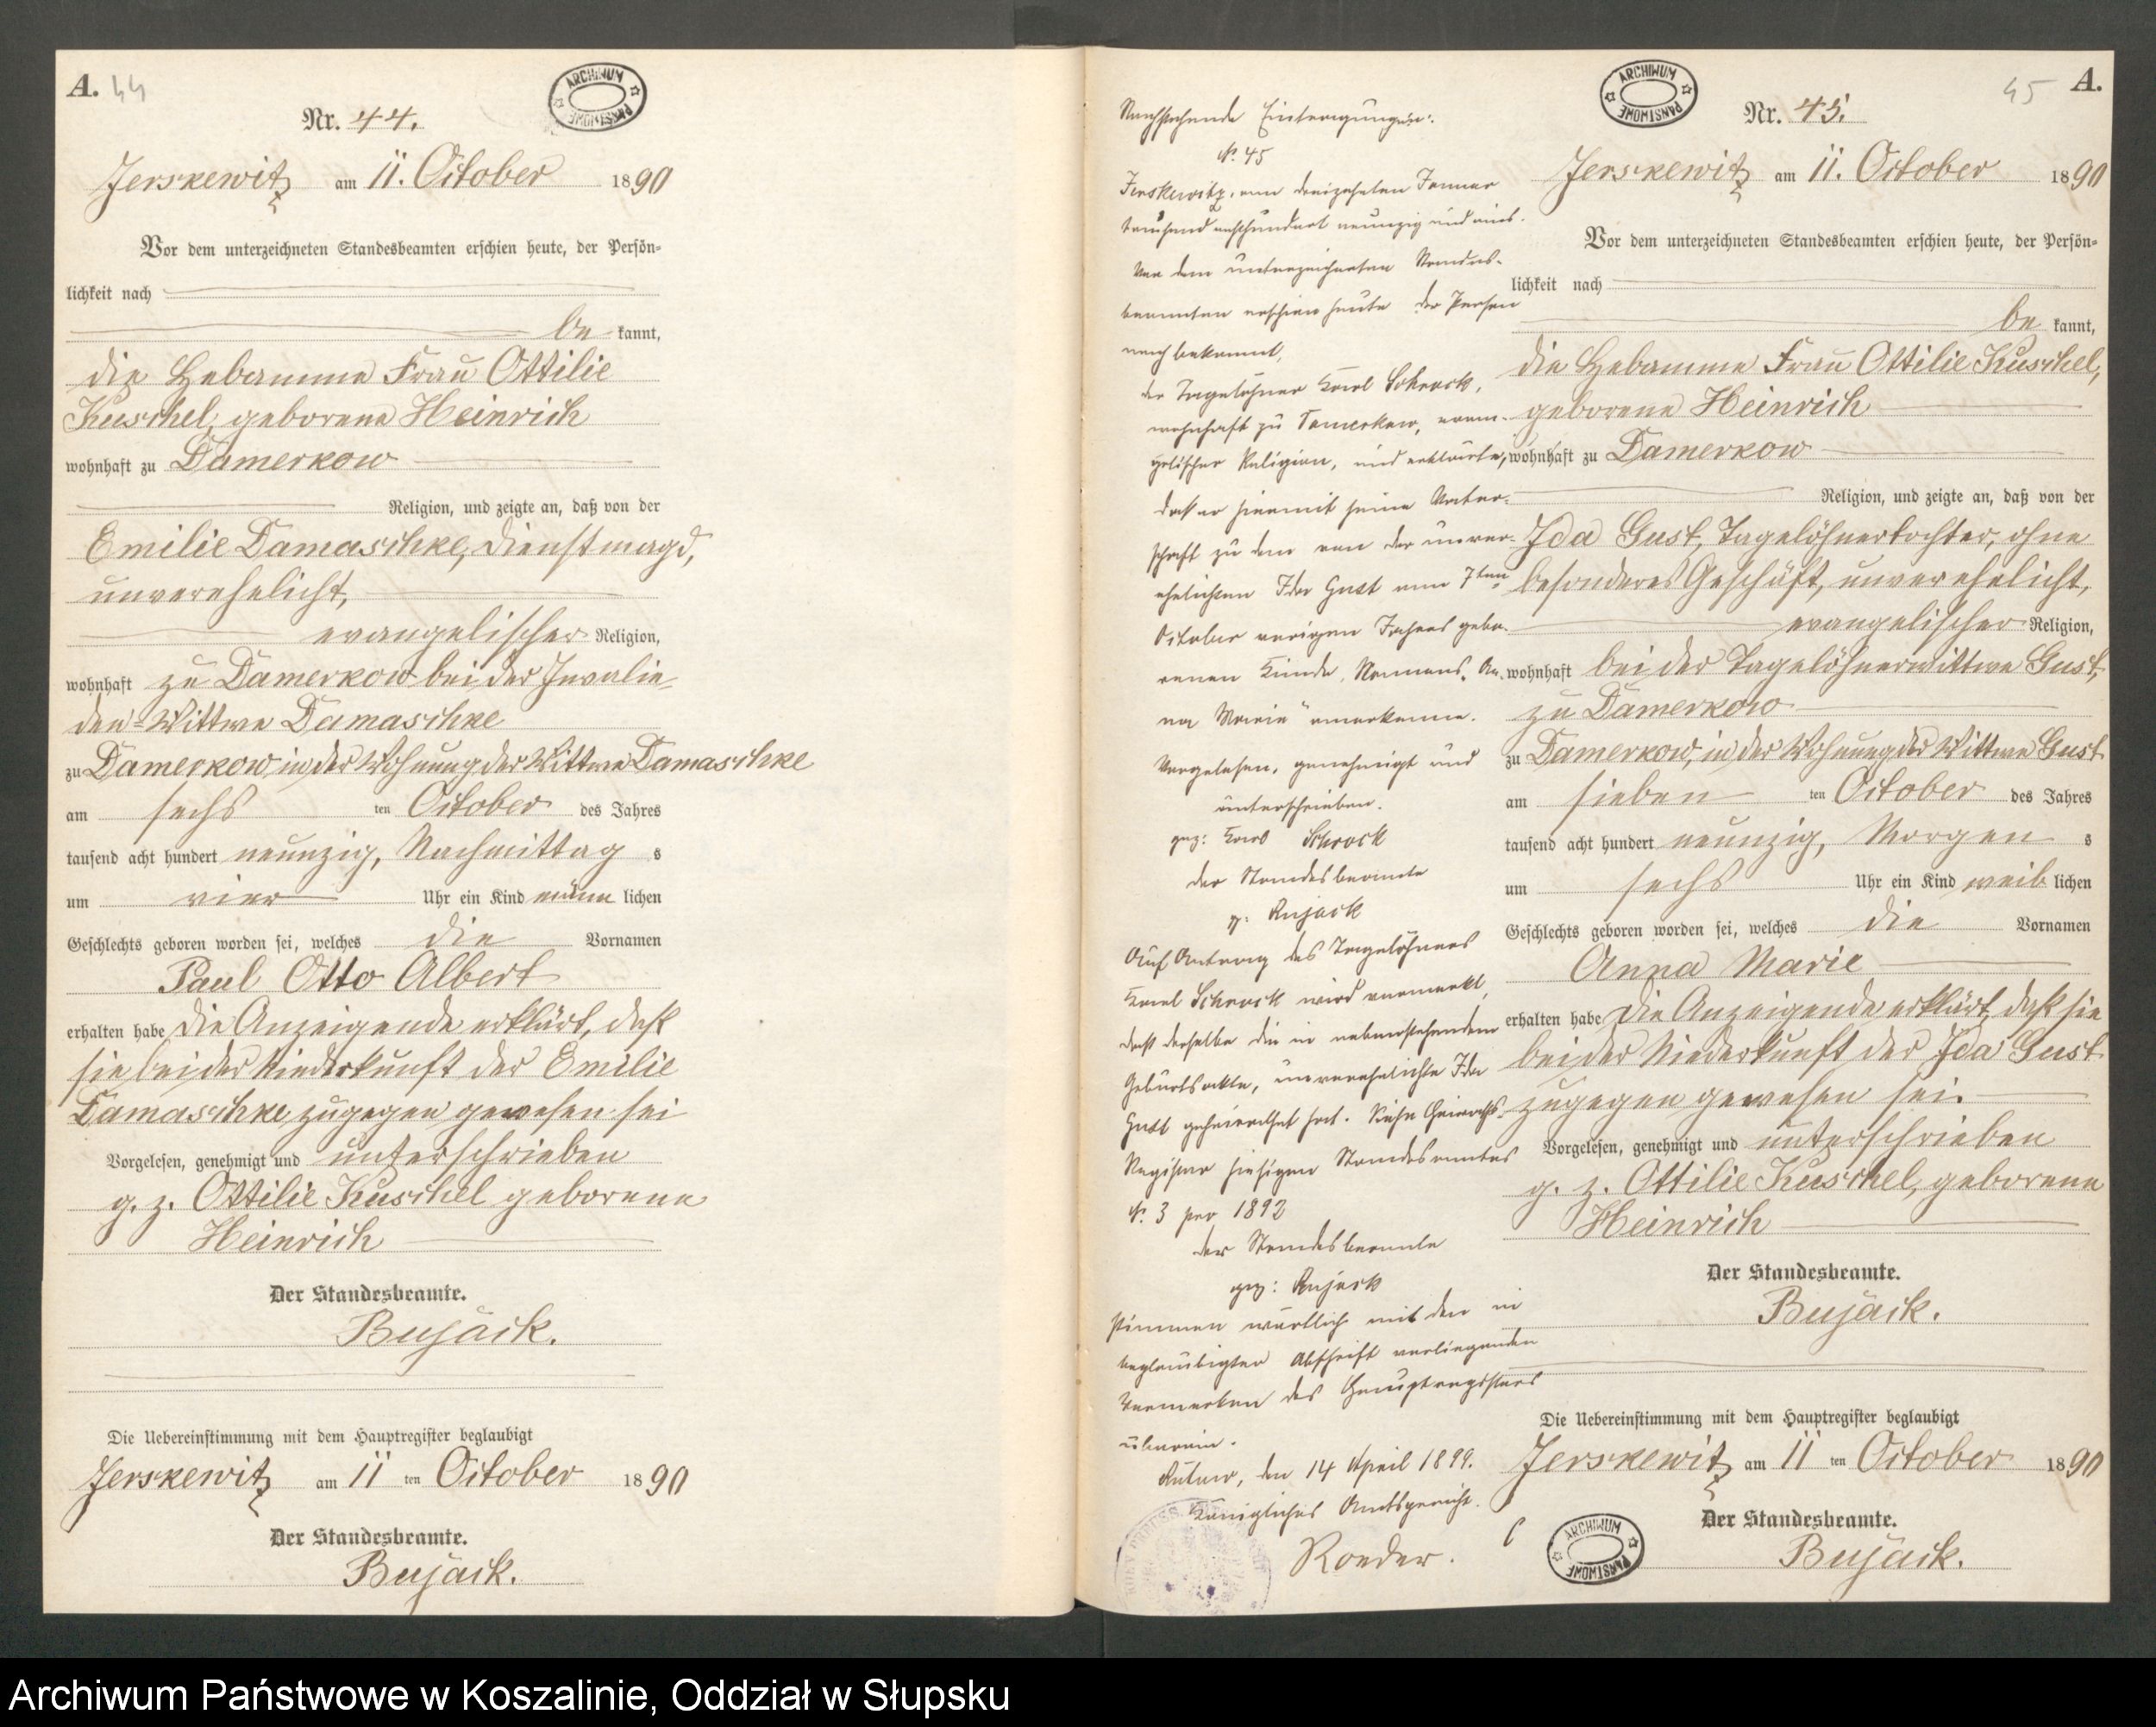 A. 44
ARCHIWUM PAŃSTWOWE
Nr. 44.
Jerskewitz am 11. October 1890
Vor dem unterzeichneten Standesbeamten erschien heute, der Persön-
lichkeit nach
be kannt,
die Hebamme Frau Ottilie
Kuschel, geborene Heinrich
wohnhaft zu Damerkow
Religion, und zeigte an, daß von der
Emilie Damaschke, Dienstmagd,
unverehelicht,
evangelischer Religion,
wohnhaft zu Damerkow bei der Invalie-
den-Wittwe Damaschke
zu Damerkow, in der Wohnung der Wittwe Damaschke
am sechs ten October des Jahres
tausend acht hundert neunzig, Nachmittag s
um vier Uhr ein Kind männ lichen
Geschlechts geboren worden sei, welches die Vornamen
Paul Otto Albert
erhalten habe Die Anzeigende erklärt, daß
sie bei der Niederkunft der Emilie
Damaschke zugegen gewesen sei
Vorgelesen, genehmigt und unterschrieben
g. z. Ottilie Kuschel geborene
Heinrich
Der Standesbeamte.
Bujack.
Die Uebereinstimmung mit dem Hauptregister beglaubigt
Jerskewitz am 11 ten October 1890
Der Standesbeamte.
Bujack.
Nachstehende Eintragungen:
N. 45
Jerskewitz, am dreizehnten Januar
tausend achthundert neunzig und eins.
Vor dem unterzeichneten Standes-
beamten erschien heute der Person
nach bekannt,
der Tagelöhner Karl Schrock,
wohnhaft zu Damerkow, evan-
gelischer Religion, und erklärte,
daß er hiermit seine Vater-
schaft zu dem von der unver-
ehelichten Ida Gust am 7ten
October vorigen Jahres gebo-
renen Kinde, Namens „An-
na Marie" anerkenne.
Vorgelesen, genehmigt und
unterschrieben.
gez: Karl Schrock
Der Standesbeamte
g: Bujack
Auf Antrag des Tagelöhners
Karl Schrock wird vermerkt,
daß derselbe die in nebenstehendem
Geburtsakte, unverehelichte Ida
Gust geheirathet hat. Siehe Heiraths-
Register hiesigen Standesamtes
N. 3 pro 1892
der Standesbeamte
gez: Bujack
stimmen wörtlich mit den in
beglaubigter Abschrift vorliegenden
Vermerken des Hauptregisters
überein.
Bütow, den 14 April 1899.
Königliches Amtsgericht.
Roeder.
45 A.
ARCHIWUM PAŃSTWOWE
Nr. 45.
Jerskewitz am 11. October 1890
Vor dem unterzeichneten Standesbeamten erschien heute, der Persön-
lichkeit nach
be kannt,
die Hebamme Frau Ottilie Kuschel,
geborene Heinrich
wohnhaft zu Damerkow
Religion, und zeigte an, daß von der
Ida Gust, Tagelöhnertochter, ohne
besonderes Geschäft, unverehelicht,
evangelischer Religion,
wohnhaft bei der Tagelöhnerwittwe Gust,
zu Damerkow
zu Damerkow, in der Wohnung der Wittwe Gust
am sieben ten October des Jahres
tausend acht hundert neunzig, Morgen s
um sechs Uhr ein Kind weib lichen
Geschlechts geboren worden sei, welches die Vornamen
Anna Marie
erhalten habe Die Anzeigende erklärt, daß sie
bei der Niederkunft der Ida Gust
zugegen gewesen sei.
Vorgelesen, genehmigt und unterschrieben
g. z. Ottilie Kuschel, geborene
Heinrich
Der Standesbeamte.
Bujack.
Die Uebereinstimmung mit dem Hauptregister beglaubigt
Jerskewitz am 11 ten October 1890
Der Standesbeamte.
ARCHIWUM PAŃSTWOWE
Bujack.
Archiwum Państwowe w Koszalinie, Oddział w Słupsku